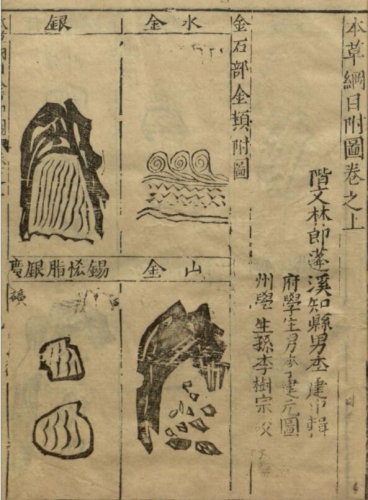 本草綱目附圖卷之上
階文林郎蓬溪知縣男李建中輯
府學生男李建元圖
州學生孫李樹宗校
金石部金類附圖
水金
山金
銀
錫悋脂銀
礦